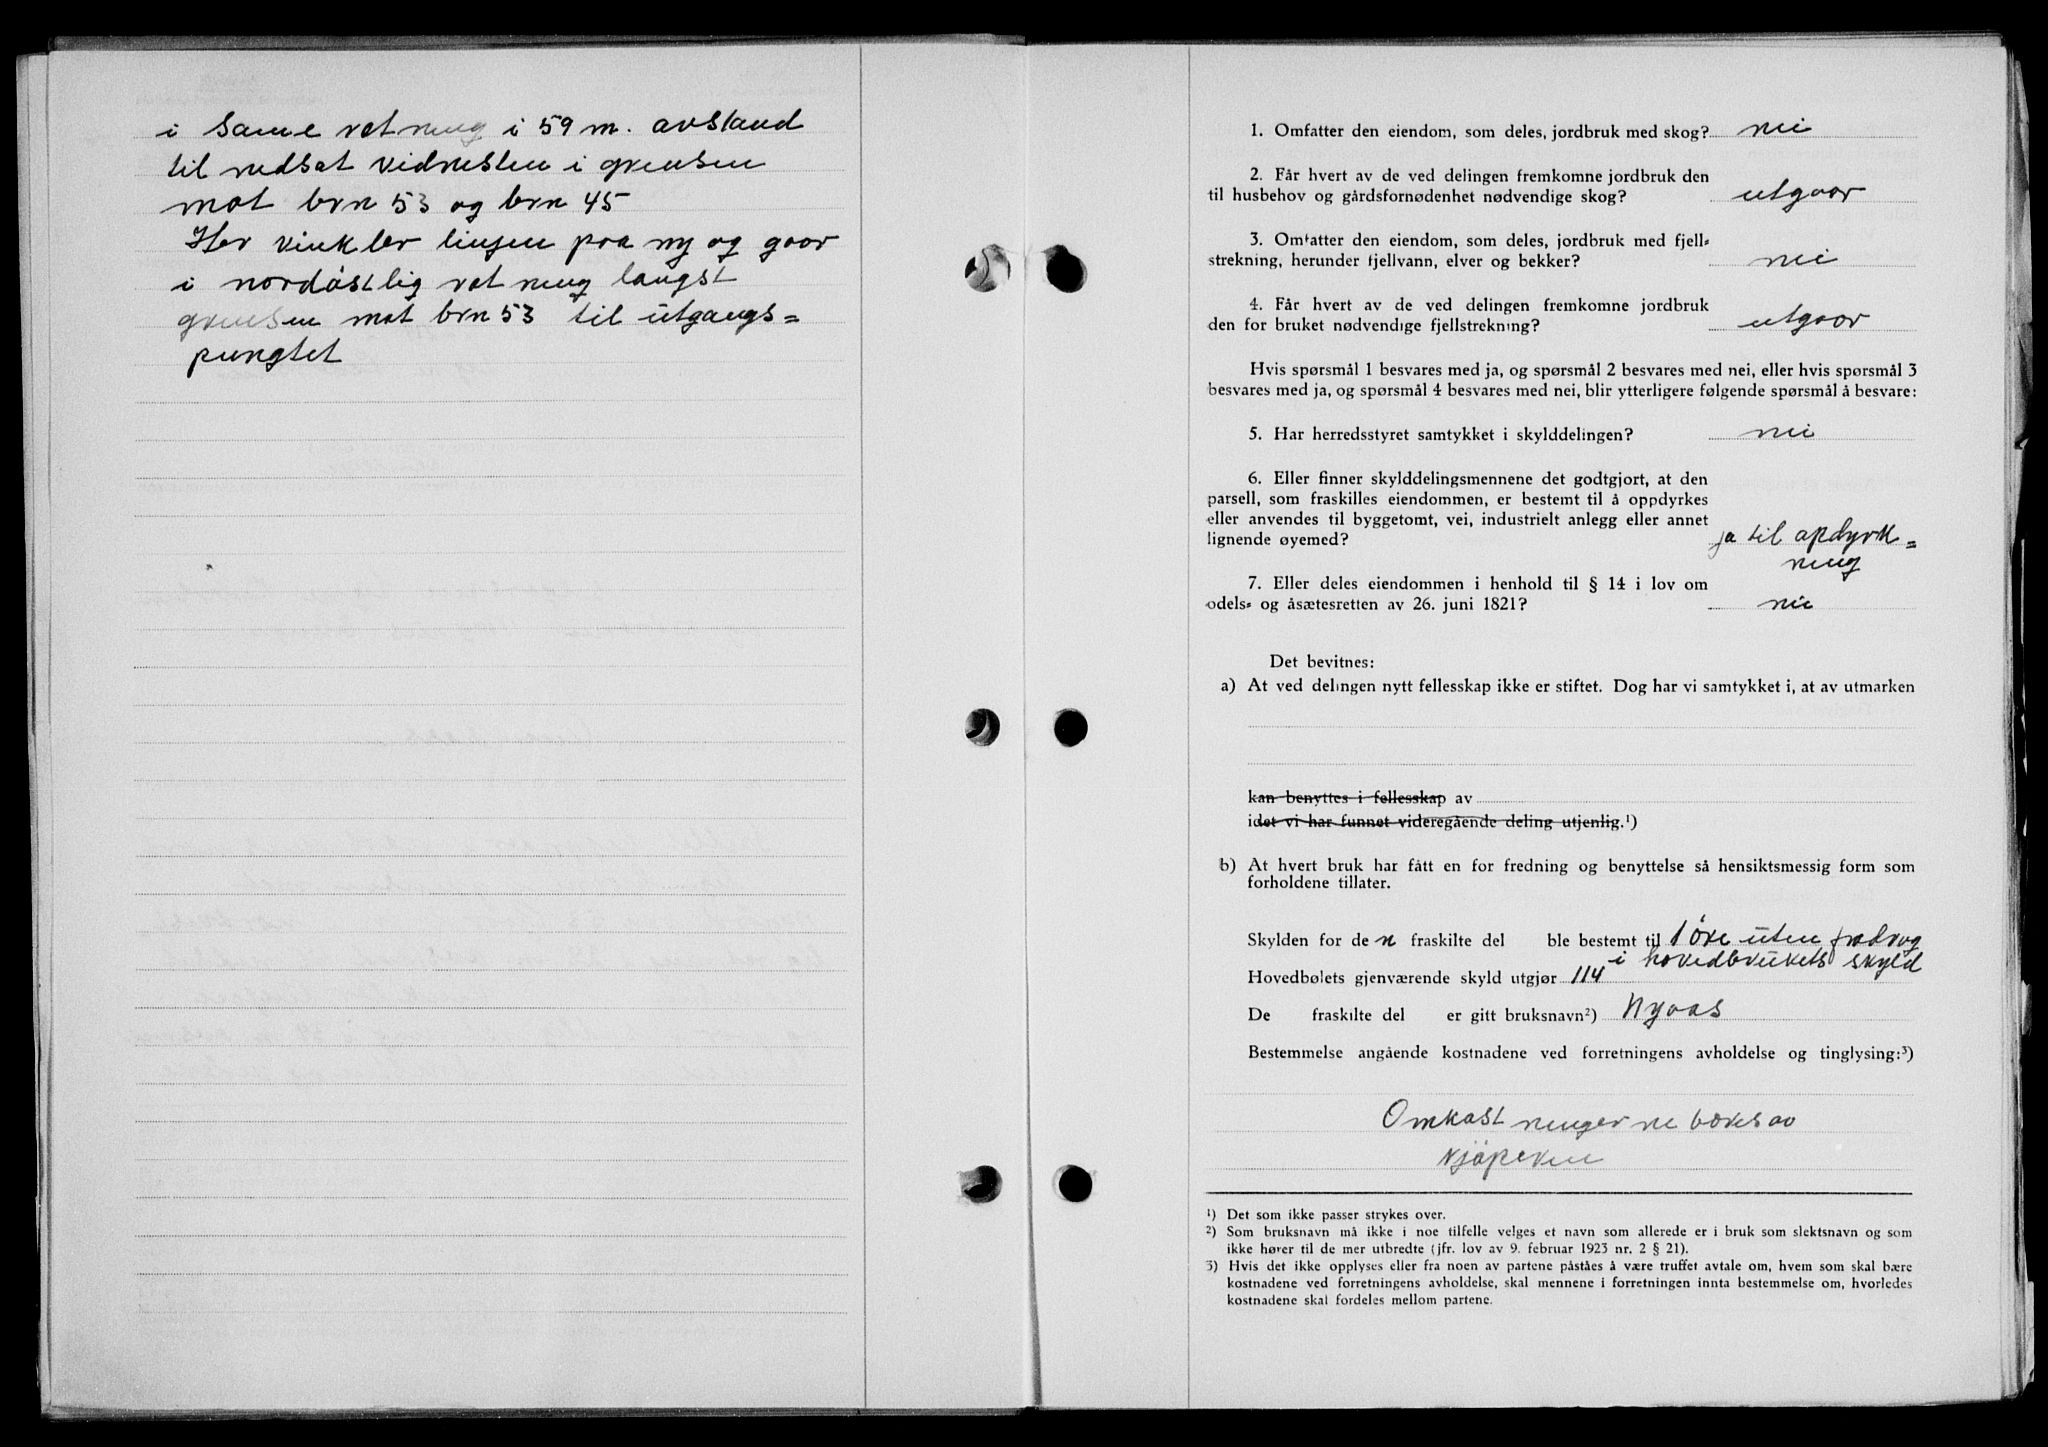 i same retning i 59 m. avstand
til nedsat vidnesten i grensen
mot brn 53 og brn 45
Her vinkler linjen paa ny og gaar
i nordöstlig retning langst
grensen mot brn 53 til utgangs=
pungtet
1. Omfatter den eiendom, som deles, jordbruk med skog? nei
2. Får hvert av de ved delingen fremkomne jordbruk den
til husbehov og gårdsfornødenhet nødvendige skog? utgaar
3. Omfatter den eiendom, som deles, jordbruk med fjell=
strekning, herunder fjellvann, elver og bekker? nei
4. Får hvert av de ved delingen fremkomne jordbruk
den for bruket nødvendige fjellstrekning? utgaar
Hvis spørsmål 1 besvares med ja, og spørsmål 2 besvares med nei, eller hvis spørsmål 3
besvares med ja, og spørsmål 4 besvares med nei, blir ytterligere følgende spørsmål å besvare:
5. Har herredsstyret samtykket i skylddelingen? nei
6. Eller finner skylddelingsmennene det godtgjort, at den
parsell, som fraskilles eiendommen, er bestemt til å oppdyrkes
eller anvendes til byggetomt, vei, industrielt anlegg eller annet
lignende øyemed? ja til opdyrk=
ning
7. Eller deles eiendommen i henhold til § 14 i lov om
odels= og åsætesretten av 26. juni 1821? nei
Det bevitnes:
a) At ved delingen nytt fellesskap ikke er stiftet. Dog har vi samtykket i, at av utmarken
kan benyttes i fellesskap av
idet vi har funnet videregående deling utjenlig.¹)
b) At hvert bruk har fått en for fredning og benyttelse så hensiktsmessig form som
forholdene tillater.
Skylden for de n fraskilte del ble bestemt til 1 öre uten fradrag
i hovedbrukets skyld
Hovedbølets gjenværende skyld utgjør 114
De fraskilte del er gitt bruksnavn²) Nyaas
Bestemmelse angående kostnadene ved forretningens avholdelse og tinglysing:³)
Omkostningerne bæres av
kjöperen
¹) Det som ikke passer strykes over.
²) Som bruksnavn må ikke i noe tilfelle velges et navn som allerede er i bruk som slektsnavn og som
ikke hører til de mer utbredte (jfr. lov av 9. februar 1923 nr. 2 § 21).
³) Hvis det ikke opplyses eller fra noen av partene påståes å være truffet avtale om, hvem som skal bære
kostnadene ved forretningens avholdelse, skal mennene i forretningen innta bestemmelse om, hvorledes
kostnadene skal fordeles mellom partene.